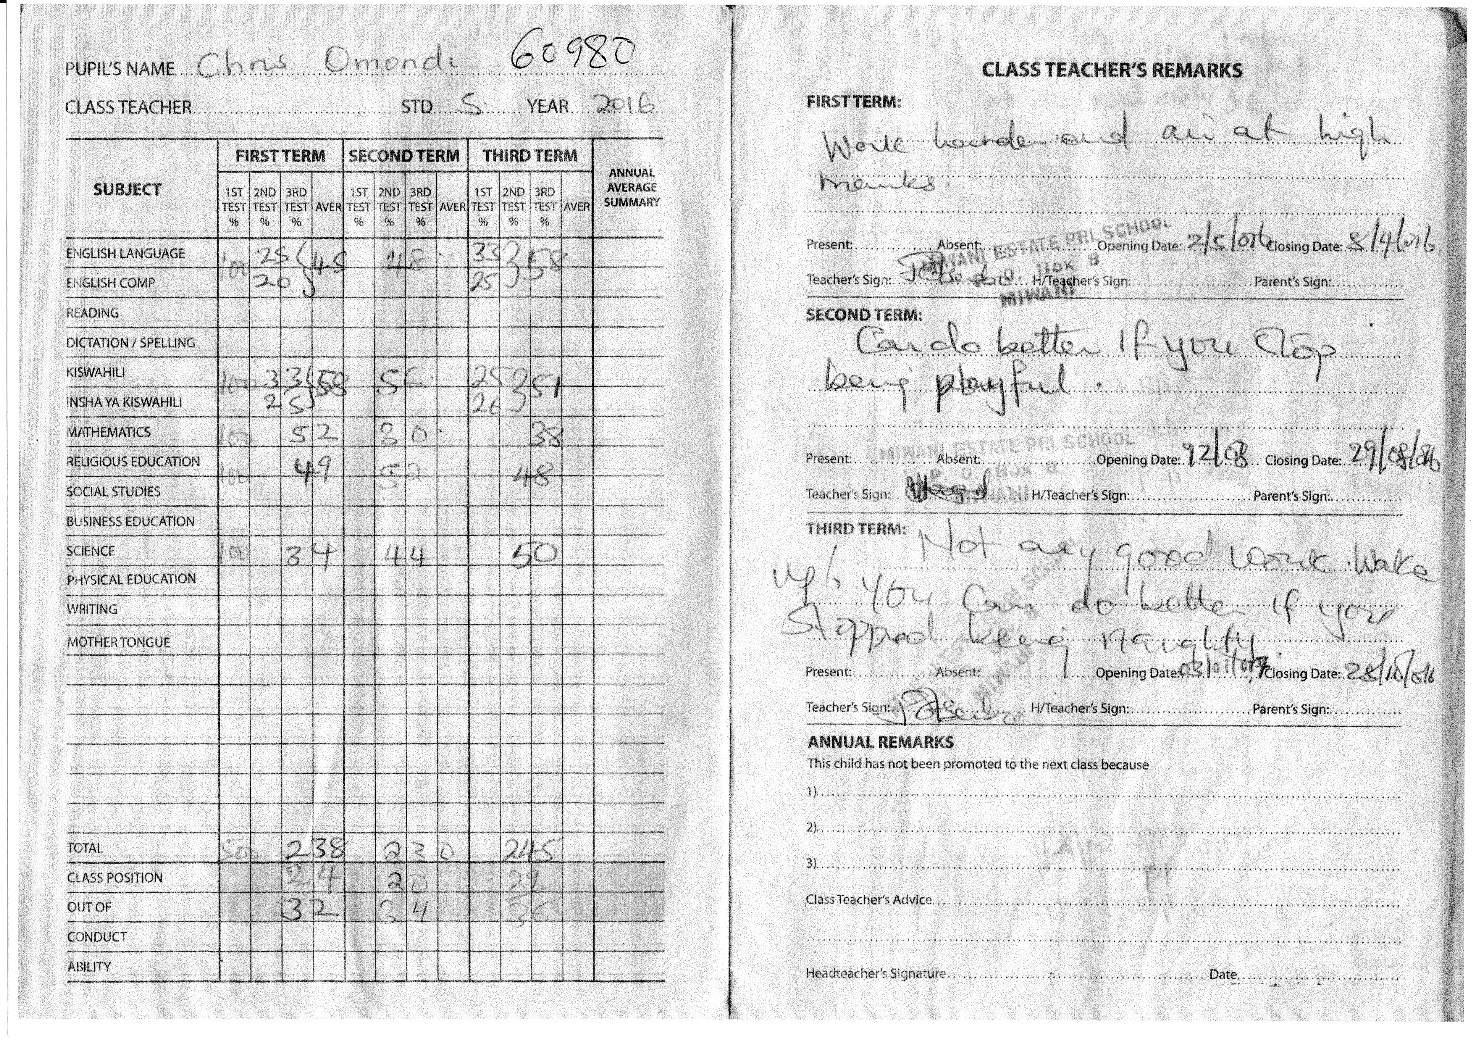 PUPIL'S NAME Chris Omondi 60980
CLASS TEACHER STD 5 YEAR 2016
SUBJECT FIRST TERM SECOND TERM THIRD TERM ANNUAL AVERAGE SUMMARY
1ST TEST % 2ND TEST % 3RD TEST % AVER 1ST TEST % 2ND TEST % 3RD TEST % AVER 1ST TEST % 2ND TEST % 3RD TEST % AVER
ENGLISH LANGUAGE 100 25 45 48 33 58
ENGLISH COMP. 20 25
READING
DICTATION / SPELLING
KISWAHILI 100 33 58 25 51
INSHA YA KISWAHILI 25 26
MATHEMATICS 100 52 30 38
RELIGIOUS EDUCATION 100 49 48
SOCIAL STUDIES
BUSINESS EDUCATION
SCIENCE 100 34 44 50
PHYSICAL EDUCATION
WRITING
MOTHER TONGUE
TOTAL 500 238 230 245
CLASS POSITION 24 20 29
OUT OF 32 34
CONDUCT
ABILITY
CLASS TEACHER'S REMARKS
FIRST TERM:
Work harder and aim at high
marks.
MIWANI ESTATE PRI SCHOOL
Present: Absent: Opening Date: 2/5/016 Closing Date: 8/4/016
BOX 8
Teacher's Sign: H/Teacher's Sign: Parent's Sign:
MIWANI
SECOND TERM:
Can do better if you stop
being playful.
MIWANI ESTATE PRI SCHOOL
Present: Absent: Opening Date: Closing Date: 29/08/016
BOX 8
Teacher's Sign: H/Teacher's Sign: Parent's Sign:
MIWANI
THIRD TERM: Not any good work. Wake
up! You can do better if you
stopped being naughty.
Present: Absent: Opening Date: 03/01/017 Closing Date: 28/10/016
Teacher's Sign: H/Teacher's Sign: Parent's Sign:
ANNUAL REMARKS
This child has not been promoted to the next class because
1)
2)
3)
Class Teacher's Advice
Headteacher's Signature Date